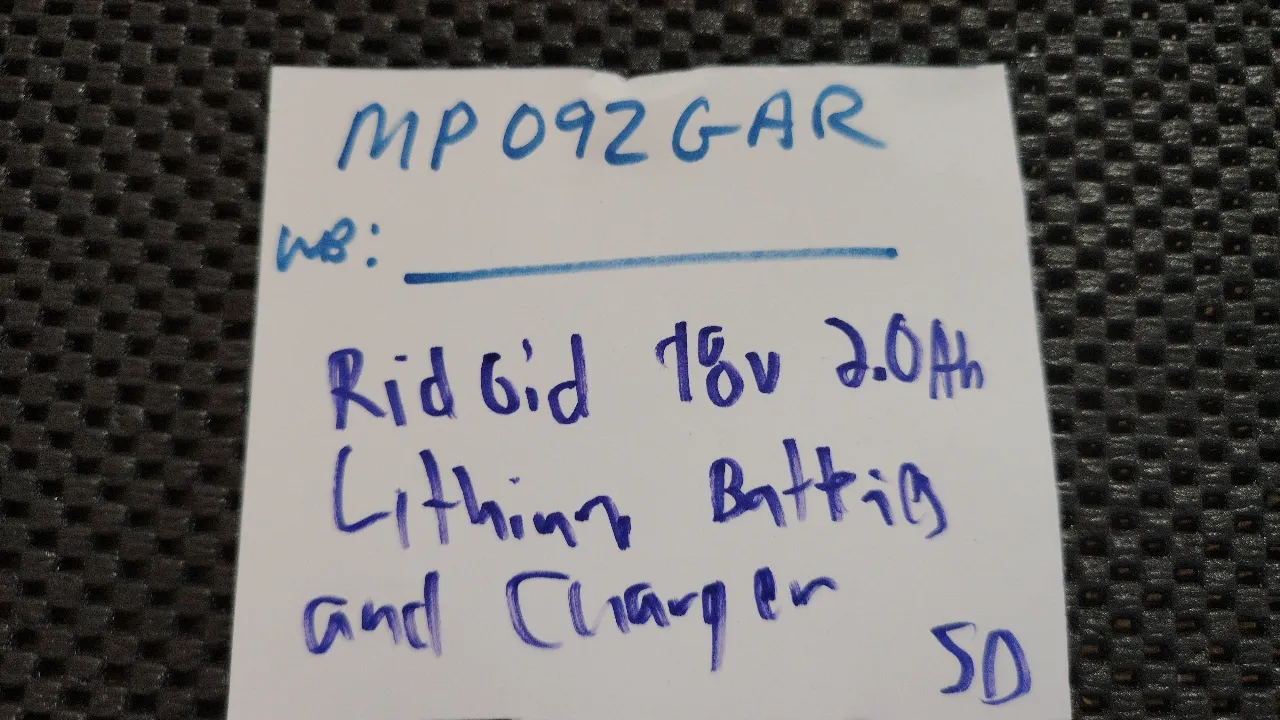 MP092GAR
WB:
RidGid 18v 2.0Ah
Lithium Battris
and Charger
SD